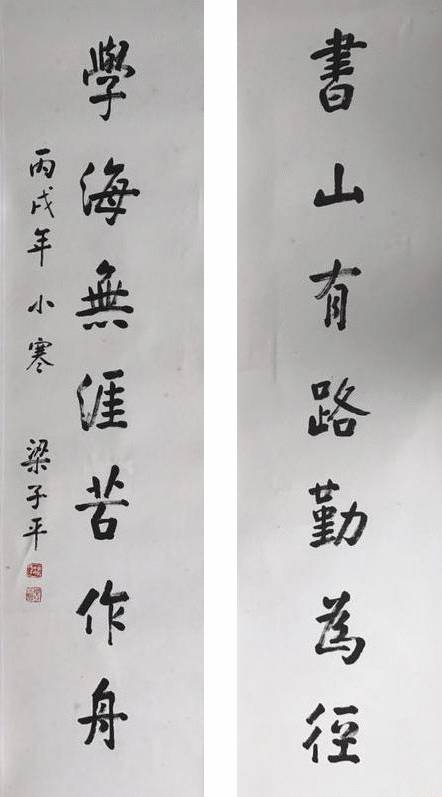 書山有路勤為徑
學海無涯苦作舟
丙戌年小寒 梁子平